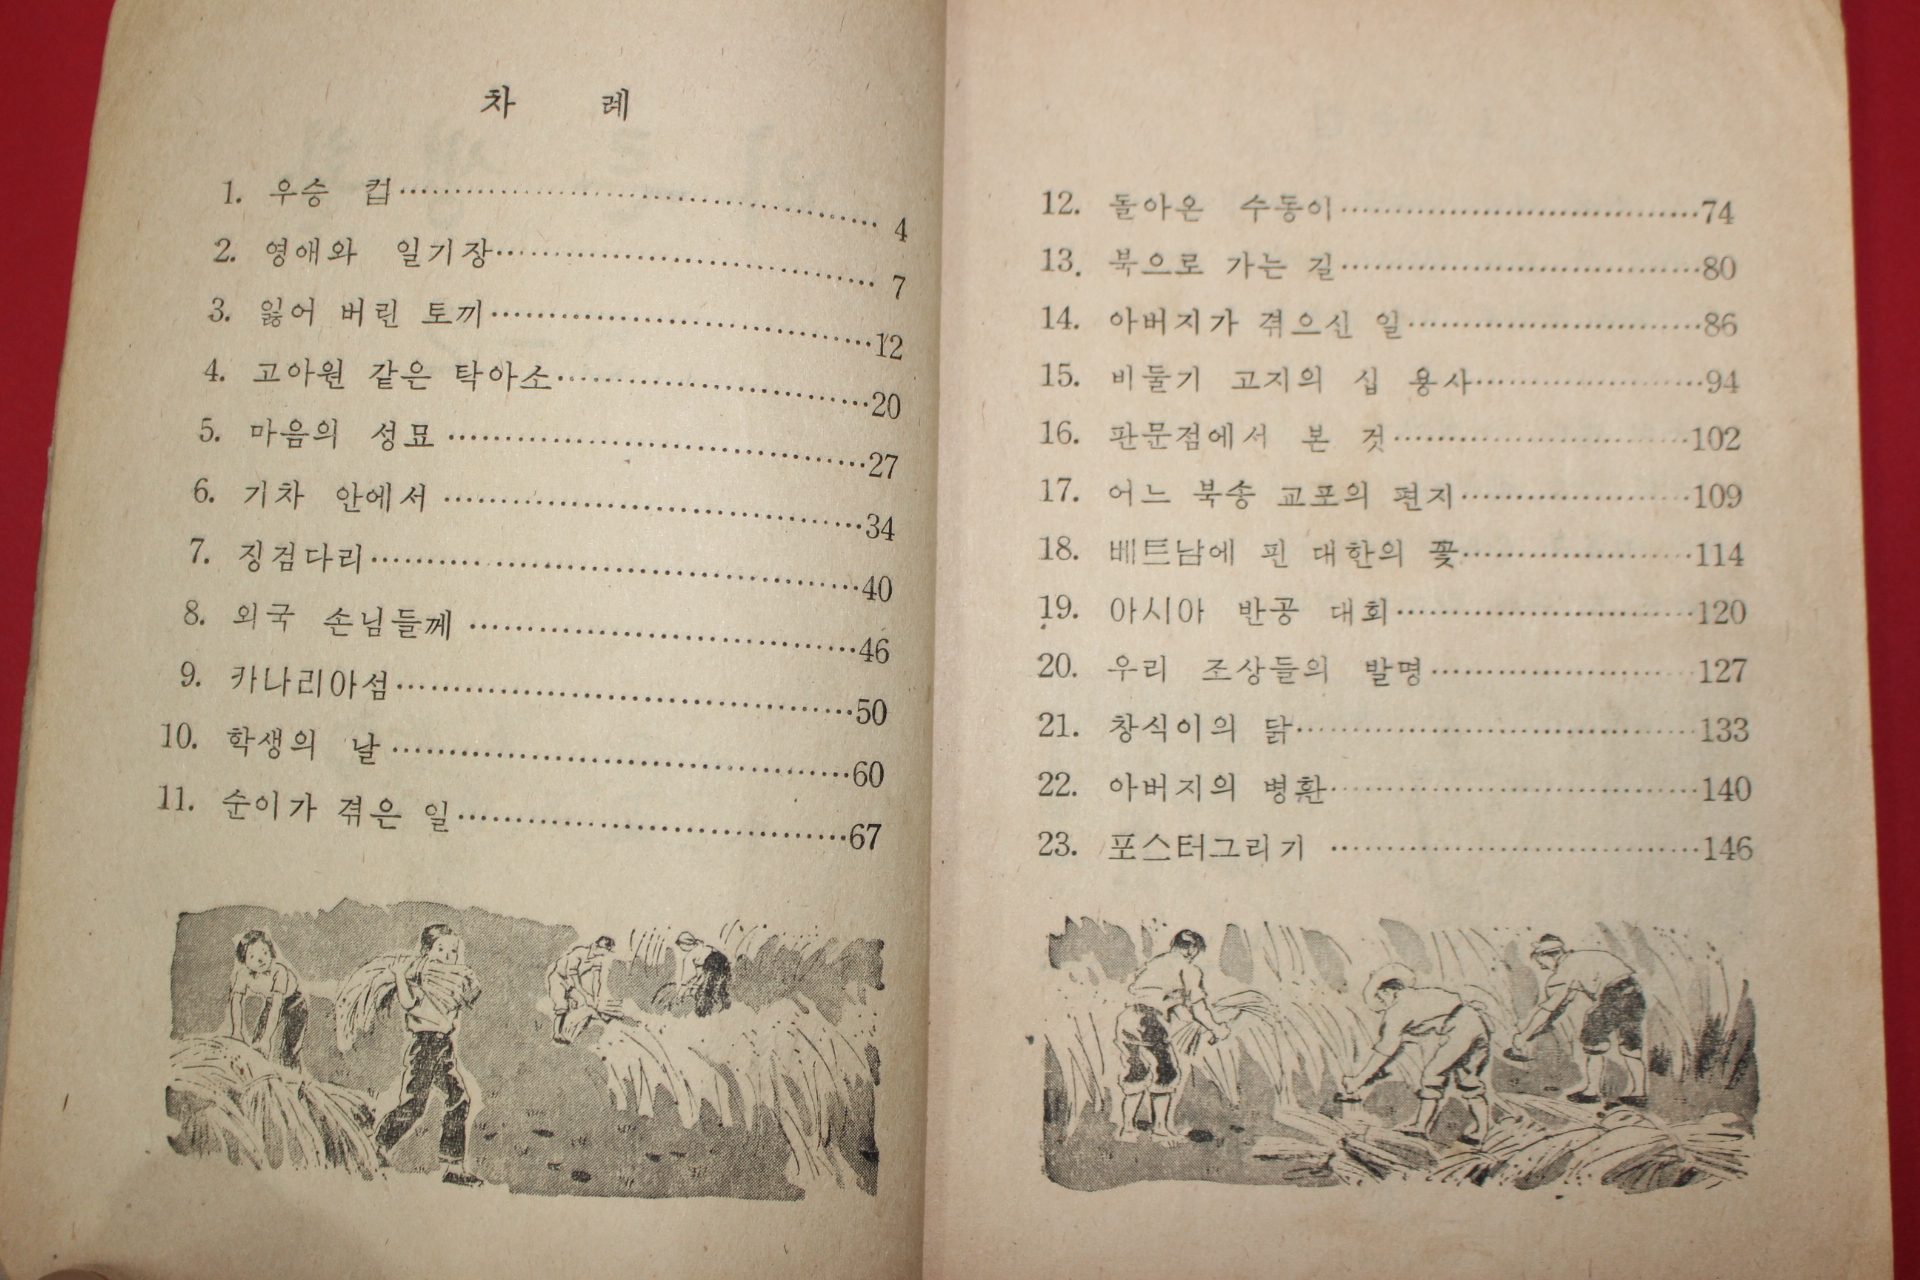 차 례
1. 우승 컵 4
2. 영애와 일기장 7
3. 잃어 버린 토끼 12
4. 고아원 같은 탁아소 20
5. 마음의 성묘 27
6. 기차 안에서 34
7. 징검다리 40
8. 외국 손님들께 46
9. 카나리아섬 50
10. 학생의 날 60
11. 순이가 겪은 일 67
12. 돌아온 수동이 74
13. 북으로 가는 길 80
14. 아버지가 겪으신 일 86
15. 비둘기 고지의 십 용사 94
16. 판문점에서 본 것 102
17. 어느 북송 교포의 편지 109
18. 베트남에 핀 대한의 꽃 114
19. 아시아 반공 대회 120
20. 우리 조상들의 발명 127
21. 창식이의 닭 133
22. 아버지의 병환 140
23. 포스터그리기 146